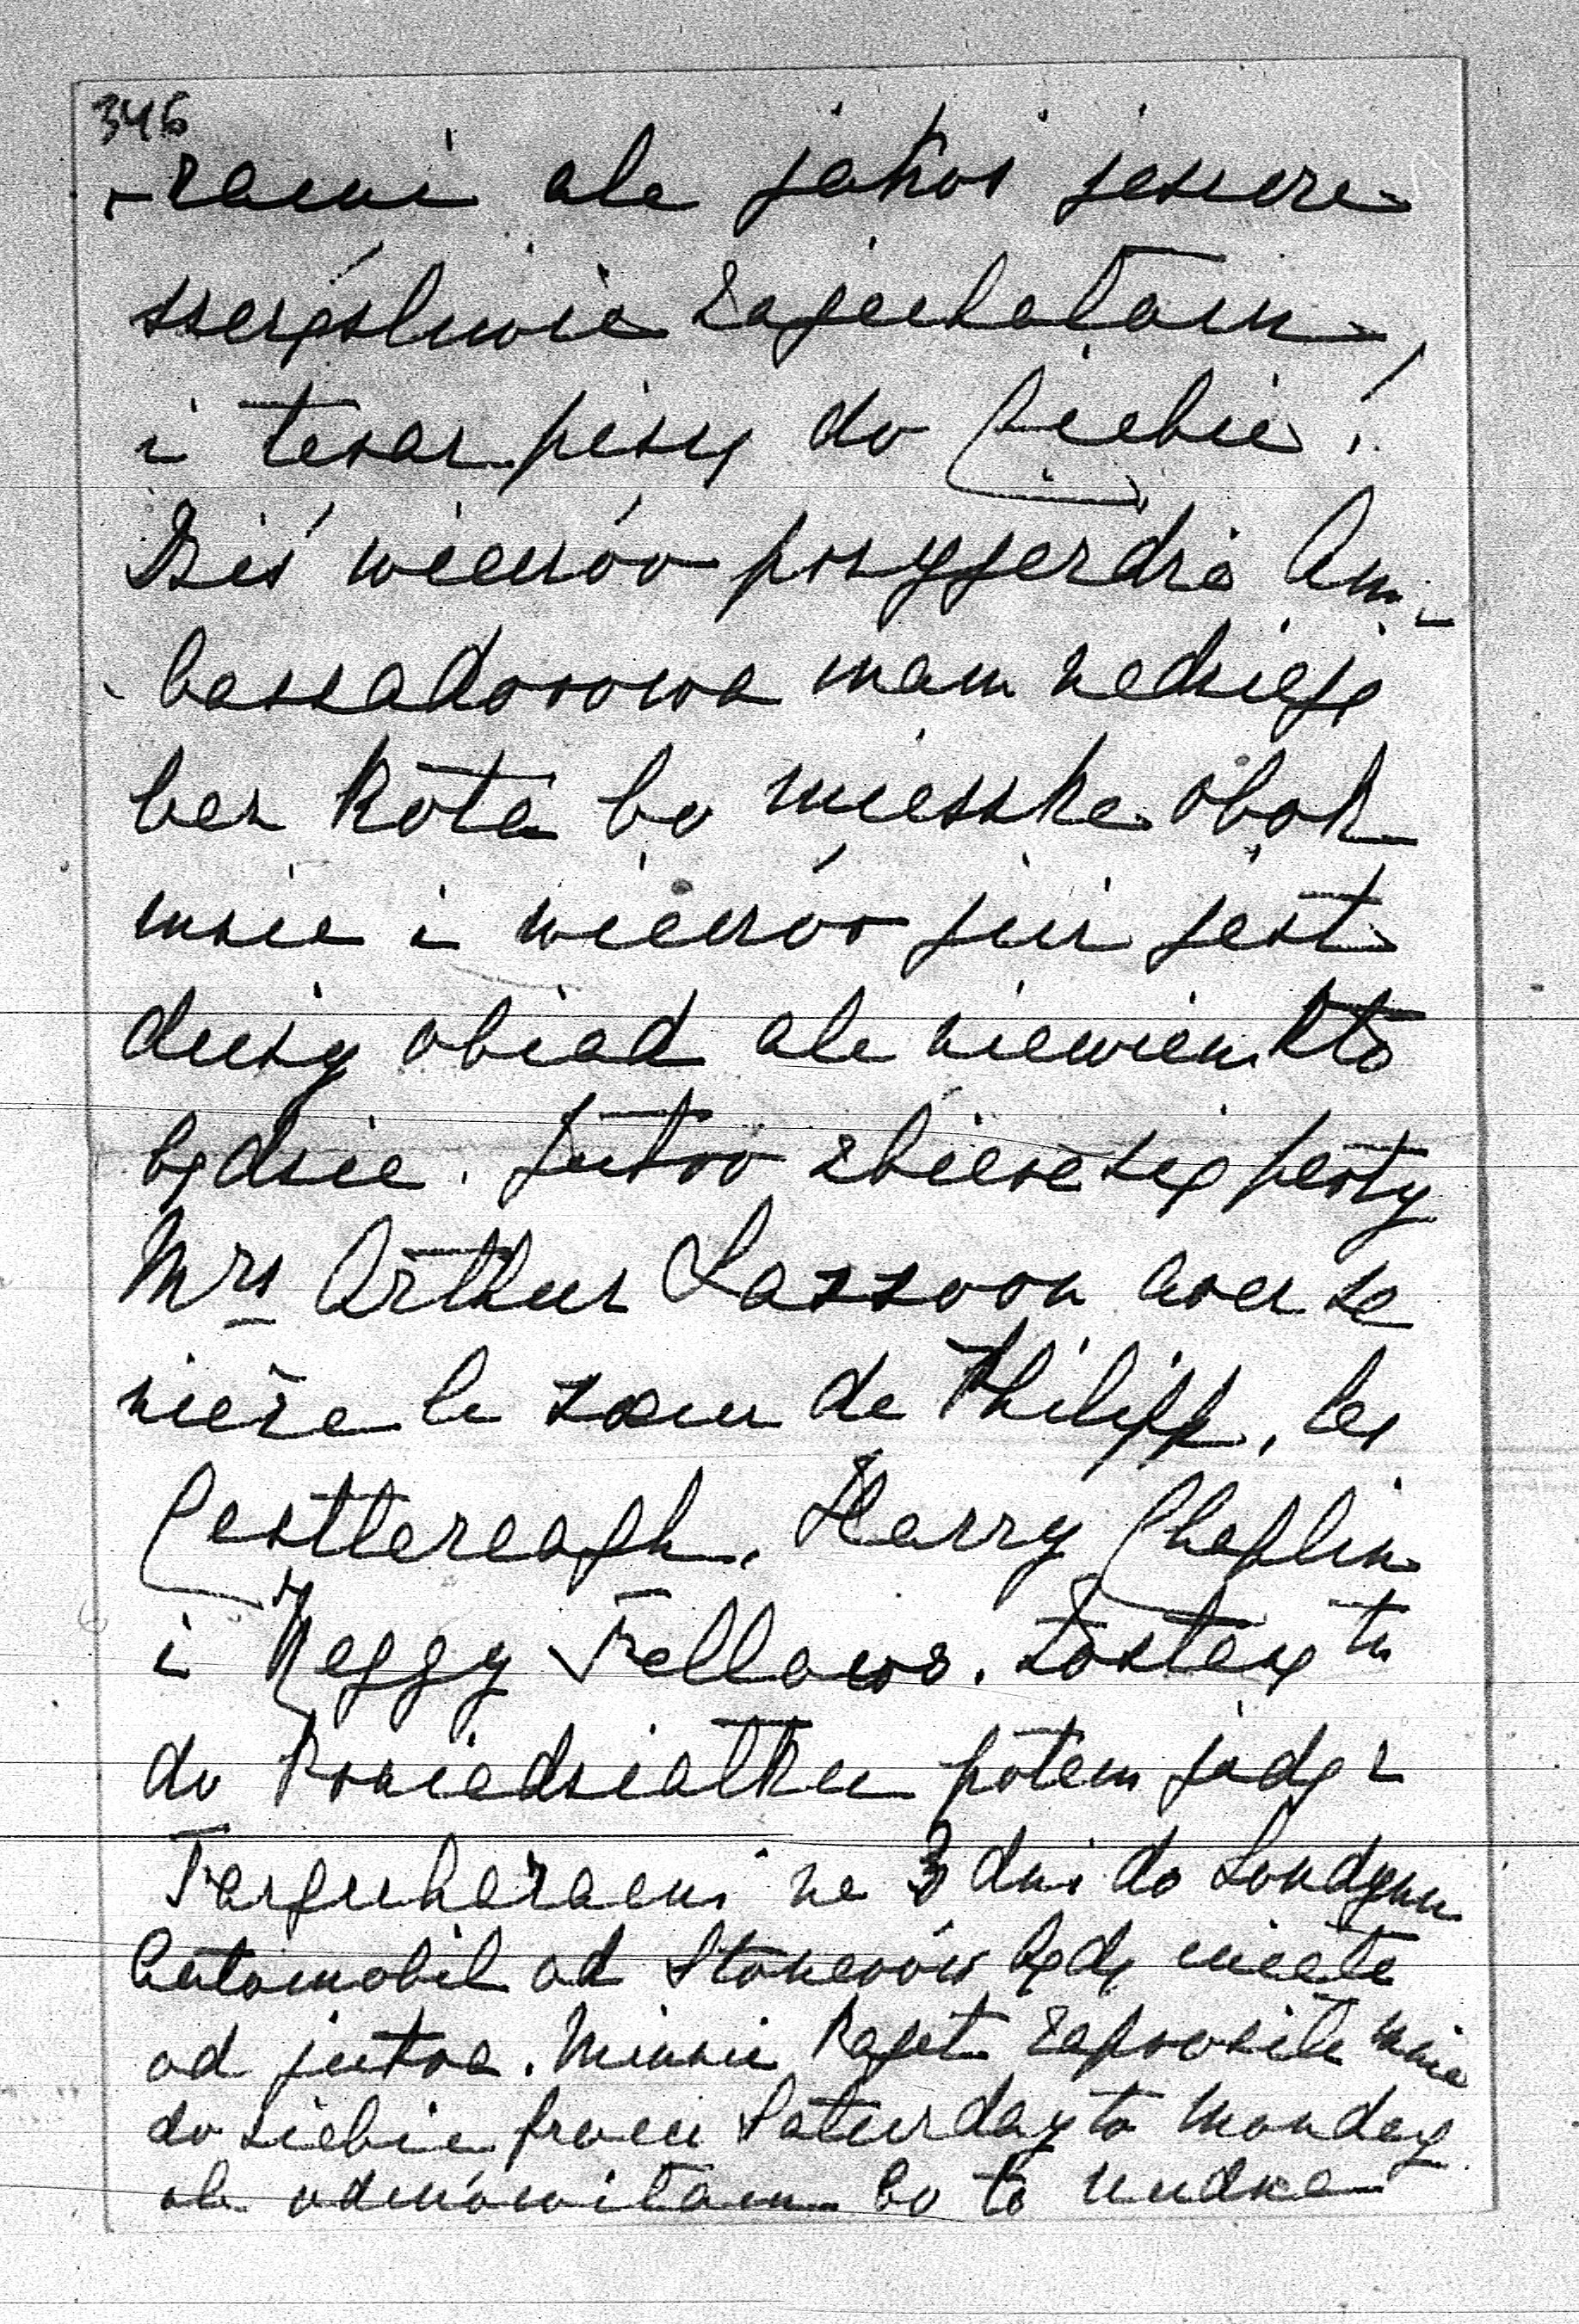 346
-rami ale jakoś jeszcze
szczęśliwie zajechałam,
i teraz piszę do Ciebie!
Dziś wieczór przyjeżdża Am-
-bassadorowa mam nadzieję
bez Kota bo mieszka obok
mnie i wieczór już jest
duży obiad ale niewiem kto
będzie. Jutro zbiera się party
Mrs Arthur Sassoon avec sa
nièce la sœur de Philipp, les
Castlereagh, Harry Chaplin
i Reggy Fellows. Zostaję tu
do Poniedziałku potem jadę z
Farquharami na 3 dni do Londynu
Automobil od Stonerów będę miała
od jutra. Minnie Paget zaprosiła mnie
do siebie from Saturday to Monday
ale odmówiłam bo to nudna